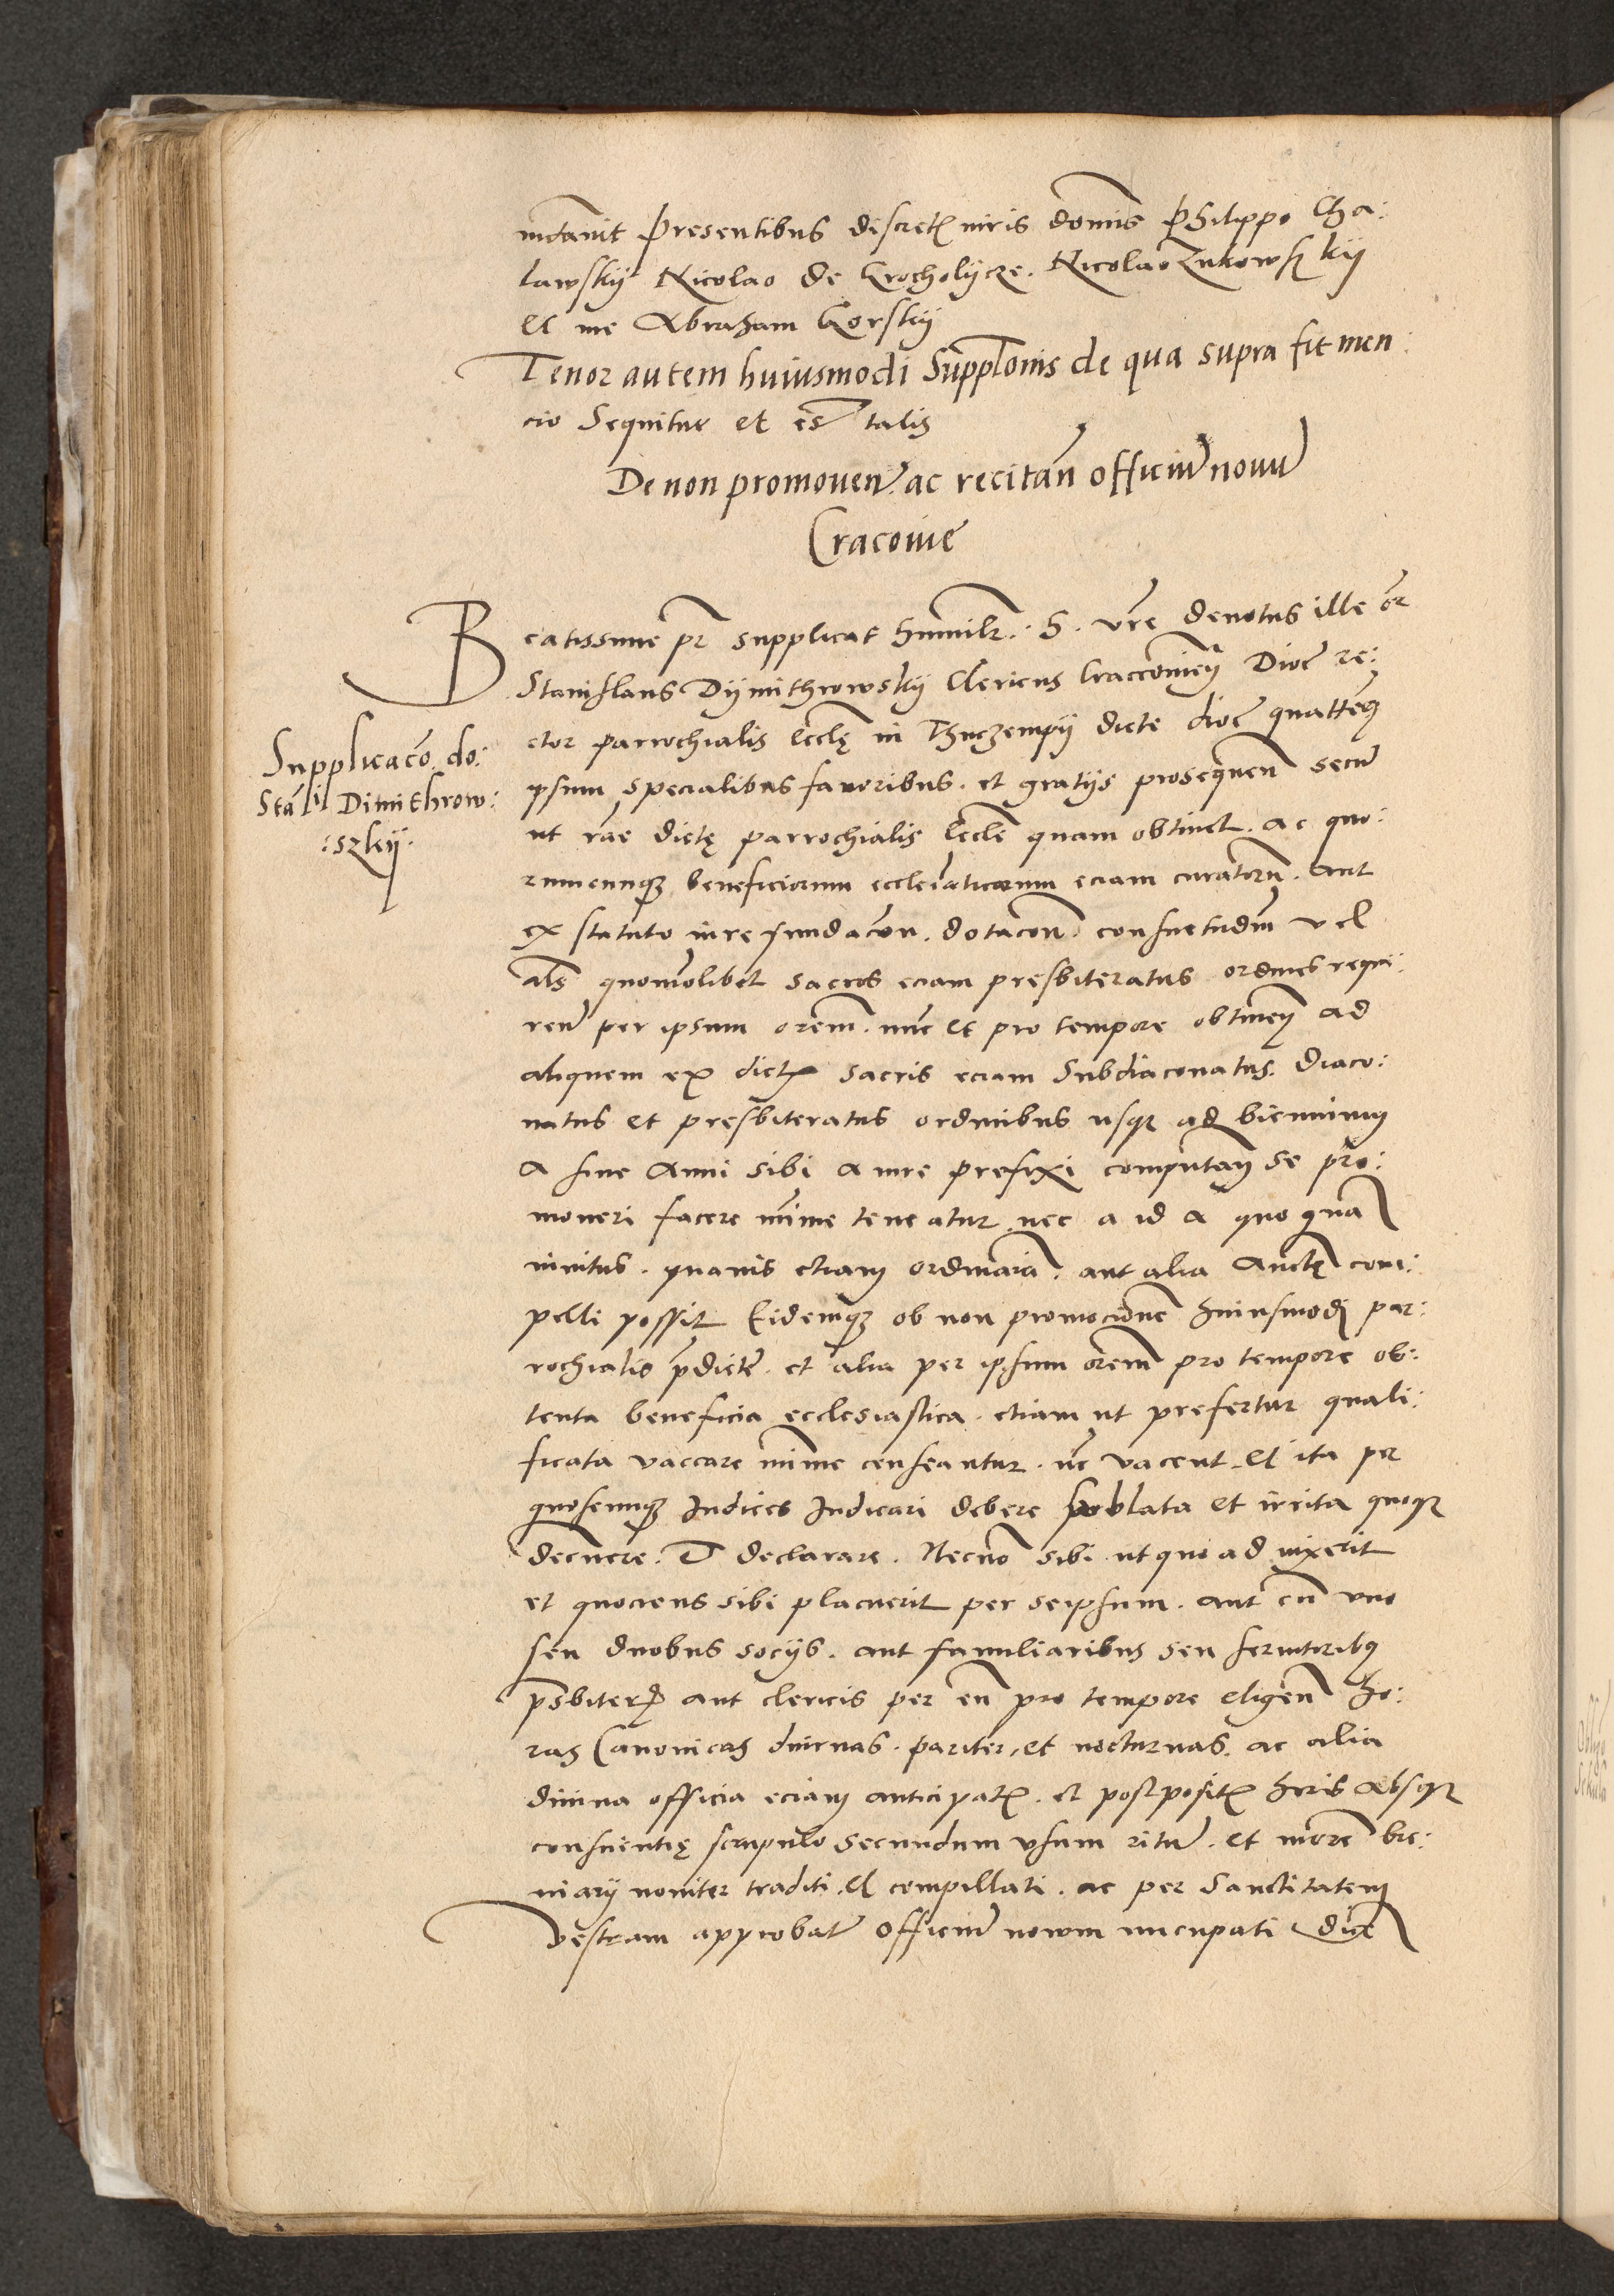 mdavit Presentibus discretis viris dominis Philippo Cha:
lawskij Nicolao de Crocholycze. Nicolao Zukowskij
et me Abraham Gorskij
Tenor autem huiusmodi Supplicationis de qua supra fit men:
cio Sequitur et est talis
De non promoven. ac recitan officiu novu
Cracovie
Beatissime pr supplicat humilr. S. vre devotus ille or
Stanislaus Dijmithrowskij Clericus Cracovien Dioc re:
ctor parrochialis eccle in Thuczempij dicte dioc quatteq
Supplicaco do:
Stali Dimithrow:
:szkij
ipsum specialibus favoribus. et gratijs prosequen secu
ut rae dicte parrochialis eccle quam obtinet. ac quo:
rumcunq beneficiorum eccleiaticorum eciam curatoru. aut
ex statuto iure fundacon. dotacon. consuetudin vel
als quomolibet sacros eciam presbiteratus ordines requi:
ren per ipsum orem. nuc et pro tempore obtinen ad
aliquem ex dictis sacris eciam Subdiaconatus. Diaco:
natus et presbiteratus ordinibus usq ad biennium
a fine Anni sibi a iure prefixi computan se pro:
moveri facere minime teneatur nec a id a quoqua
invitus. quavis etiam ordinaria. aut alia Aucte com:
pelli possit Eidemq ob non promocione huiusmodi par:
rochialis pdicte. et alia per ipsum orem pro tempore ob:
tenta beneficia ecclesiastica. etiam ut prefertur quali:
ficata vaccare minime censeantur. nec vacent. et ita per
quoscunq Iudices Iudicari debere sublata et irrita quoq
decernere. Et declarare. Necno sibi ut quo ad vixerit
et quociens sibi placuerit per seipsum. aut cu uno
seu duobus socijs. aut familiaribus seu servitoribq
psbiteris aut clericis per eu pro tempore eligen ho:
ras Canonicas diurnas. pariter. et nocturnas. ac alia
divina officia eciam anticipatis. et postpositis horis absq
consientie scrupulo secundum usum ritu. et more bre:
viarij noviter traditi. et compillati. ac per Sanctitatem
vestram approbat officiu novum nucupati dice